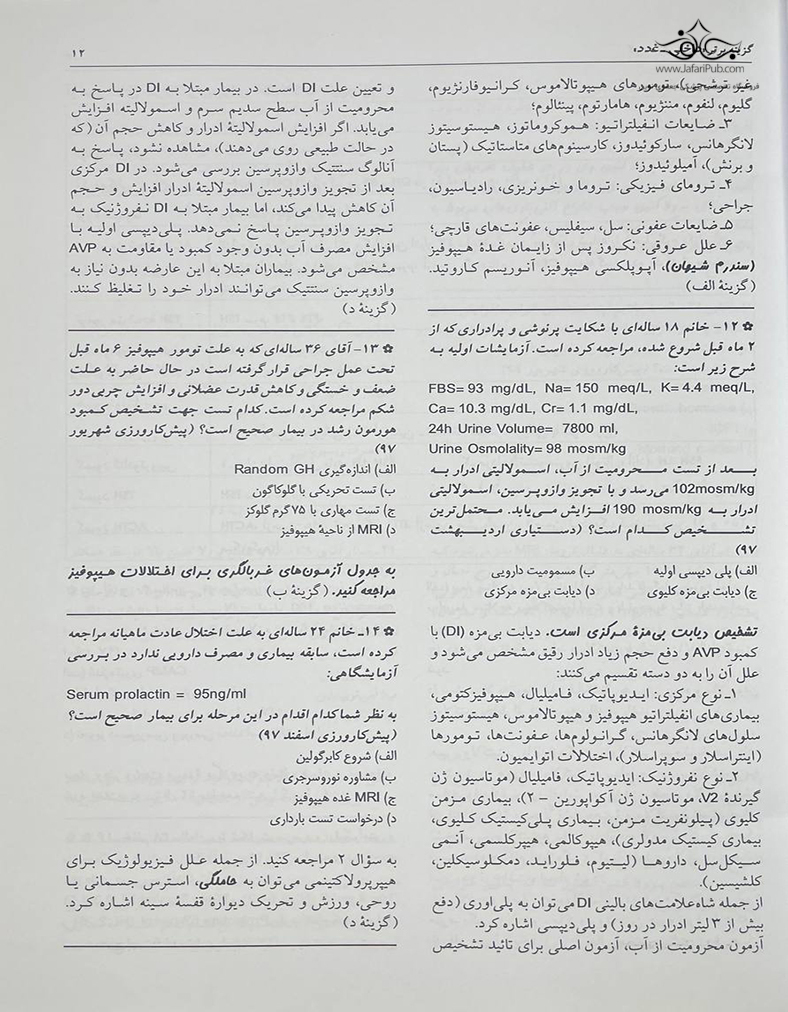 ۱۲
گزینه برتر
غدد
www.JafariPub.com
غیر ترشحی)، تومورهای هیپوتالاموس، کرانیوفارنژیوم،
گلیوم، لنفوم، مننژیوم، هامارتوم، پینئالوم؛
۳ـ ضایعات انفیلتراتیو: هموکروماتوز، هیستوسیتوز
لانگرهانس، سارکوئیدوز، کارسینوم‌های متاستاتیک (پستان
و برنش)، آمیلوئیدوز؛
۴ـ تروماهای فیزیکی: تروما و خونریزی، رادیاسیون،
جراحی؛
۵ـ ضایعات عفونی: سل، سیفلیس، عفونت‌های قارچی؛
۶ـ علل عروقی: نکروز پس از زایمان غدهٔ هیپوفیز
(سندرم شیهان)، آپوپلکسی هیپوفیز، آنوریسم کاروتید.
(گزینهٔ الف)
۱۲- خانم ۱۸ ساله‌ای با شکایت پرنوشی و پرادراری که از
۲ ماه قبل شروع شده، مراجعه کرده است. آزمایشات اولیه به
شرح زیر است:
FBS= 93 mg/dL, Na= 150 meq/L, K= 4.4 meq/L,
Ca= 10.3 mg/dL, Cr= 1.1 mg/dL,
24h Urine Volume= 7800 ml,
Urine Osmolality= 98 mosm/kg
بعد از تست محرومیت از آب، اسمولالیتی ادرار به
102mosm/kg می‌رسد و با تجویز وازوپرسین، اسمولالیتی
ادرار به 190 mosm/kg افزایش می‌یابد. محتمل‌ترین
تشخیص کدام است؟ (دستیاری اردیبهشت
۹۷)
الف) پلی دیپسی اولیه ب) مسمومیت دارویی
ج) دیابت بی‌مزه کلیوی د) دیابت بی‌مزه مرکزی
تشخیص دیابت بی‌مزهٔ مرکزی است. دیابت بی‌مزه (DI) با
کمبود AVP و دفع حجم زیاد ادرار رقیق مشخص می‌شود و
علل آن را به دو دسته تقسیم می‌کنند:
۱ـ نوع مرکزی: ایدیوپاتیک، فامیلیال، هیپوفیزکتومی،
بیماری‌های انفیلتراتیو هیپوفیز و هیپوتالاموس، هیستوسیتوز
سلول‌های لانگرهانس، گرانولوم‌ها، عفونت‌ها، تومورها
(اینتراسلار و سوپراسلار)، اختلالات اتوایمیون.
۲ـ نوع نفروژنیک: ایدیوپاتیک، فامیلیال (موتاسیون ژن
گیرندهٔ V2، موتاسیون ژن آکواپورین – ۲)، بیماری مزمن
کلیوی (پیلونفریت مزمن، بیماری پلی‌کیستیک کلیوی،
بیماری کیستیک مدولری)، هیپوکالمی، هیپرکلسمی، آنمی
سیکل‌سل، داروها (لیتیوم، فلوراید، دمکلوسیکلین،
کلشیسین).
از جمله شاه‌علامت‌های بالینی DI می‌توان به پلی‌اوری (دفع
بیش از ۳ لیتر ادرار در روز) و پلی‌دیپسی اشاره کرد.
آزمون محرومیت از آب، آزمون اصلی برای تائید تشخیص
و تعیین علت DI است. در بیمار مبتلا به DI در پاسخ به
محرومیت از آب سطح سدیم سرم و اسمولالیته افزایش
می‌یابد. اگر افزایش اسمولالیتهٔ ادرار و کاهش حجم آن (که
در حالت طبیعی روی می‌دهند)، مشاهده نشود، پاسخ به
آنالوگ سنتتیک وازوپرسین بررسی می‌شود. در DI مرکزی
بعد از تجویز وازوپرسین اسمولالیتهٔ ادرار افزایش و حجم
آن کاهش پیدا می‌کند، اما بیمار مبتلا به DI نفروژنیک به
تجویز وازوپرسین پاسخ نمی‌دهد. پلی‌دیپسی اولیه با
افزایش مصرف آب بدون وجود کمبود یا مقاومت به AVP
مشخص می‌شود. بیماران مبتلا به این عارضه بدون نیاز به
وازوپرسین سنتتیک می‌توانند ادرار خود را تغلیظ کنند.
(گزینهٔ د)
۱۳- آقای ۳۶ ساله‌ای که به علت تومور هیپوفیز ۶ ماه قبل
تحت عمل جراحی قرار گرفته است در حال حاضر به علت
ضعف و خستگی و کاهش قدرت عضلانی و افزایش چربی دور
شکم مراجعه کرده است. کدام تست جهت تشخیص کمبود
هورمون رشد در بیمار صحیح است؟ (پیش‌کارورزی شهریور
۹۷)
الف) اندازه‌گیری Random GH
ب) تست تحریکی با گلوکاگون
ج) تست مهاری با ۷۵ گرم گلوکز
د) MRI از ناحیهٔ هیپوفیز
به جدول آزمون‌های غربالگری برای اختلالات هیپوفیز
مراجعه کنید. (گزینهٔ ب)
۱۴- خانم ۲۴ ساله‌ای به علت اختلال عادت ماهیانه مراجعه
کرده است، سابقه بیماری و مصرف دارویی ندارد در بررسی
آزمایشگاهی:
Serum prolactin = 95ng/ml
به نظر شما کدام اقدام در این مرحله برای بیمار صحیح است؟
(پیش‌کارورزی اسفند ۹۷)
الف) شروع کابرگولین
ب) مشاوره نوروسرجری
ج) MRI غده هیپوفیز
د) درخواست تست بارداری
به سؤال ۲ مراجعه کنید. از جمله علل فیزیولوژیک برای
هیپرپرولاکتینمی می‌توان به حاملگی، استرس جسمانی یا
روحی، ورزش و تحریک دیوارهٔ قفسهٔ سینه اشاره کرد.
(گزینهٔ د)